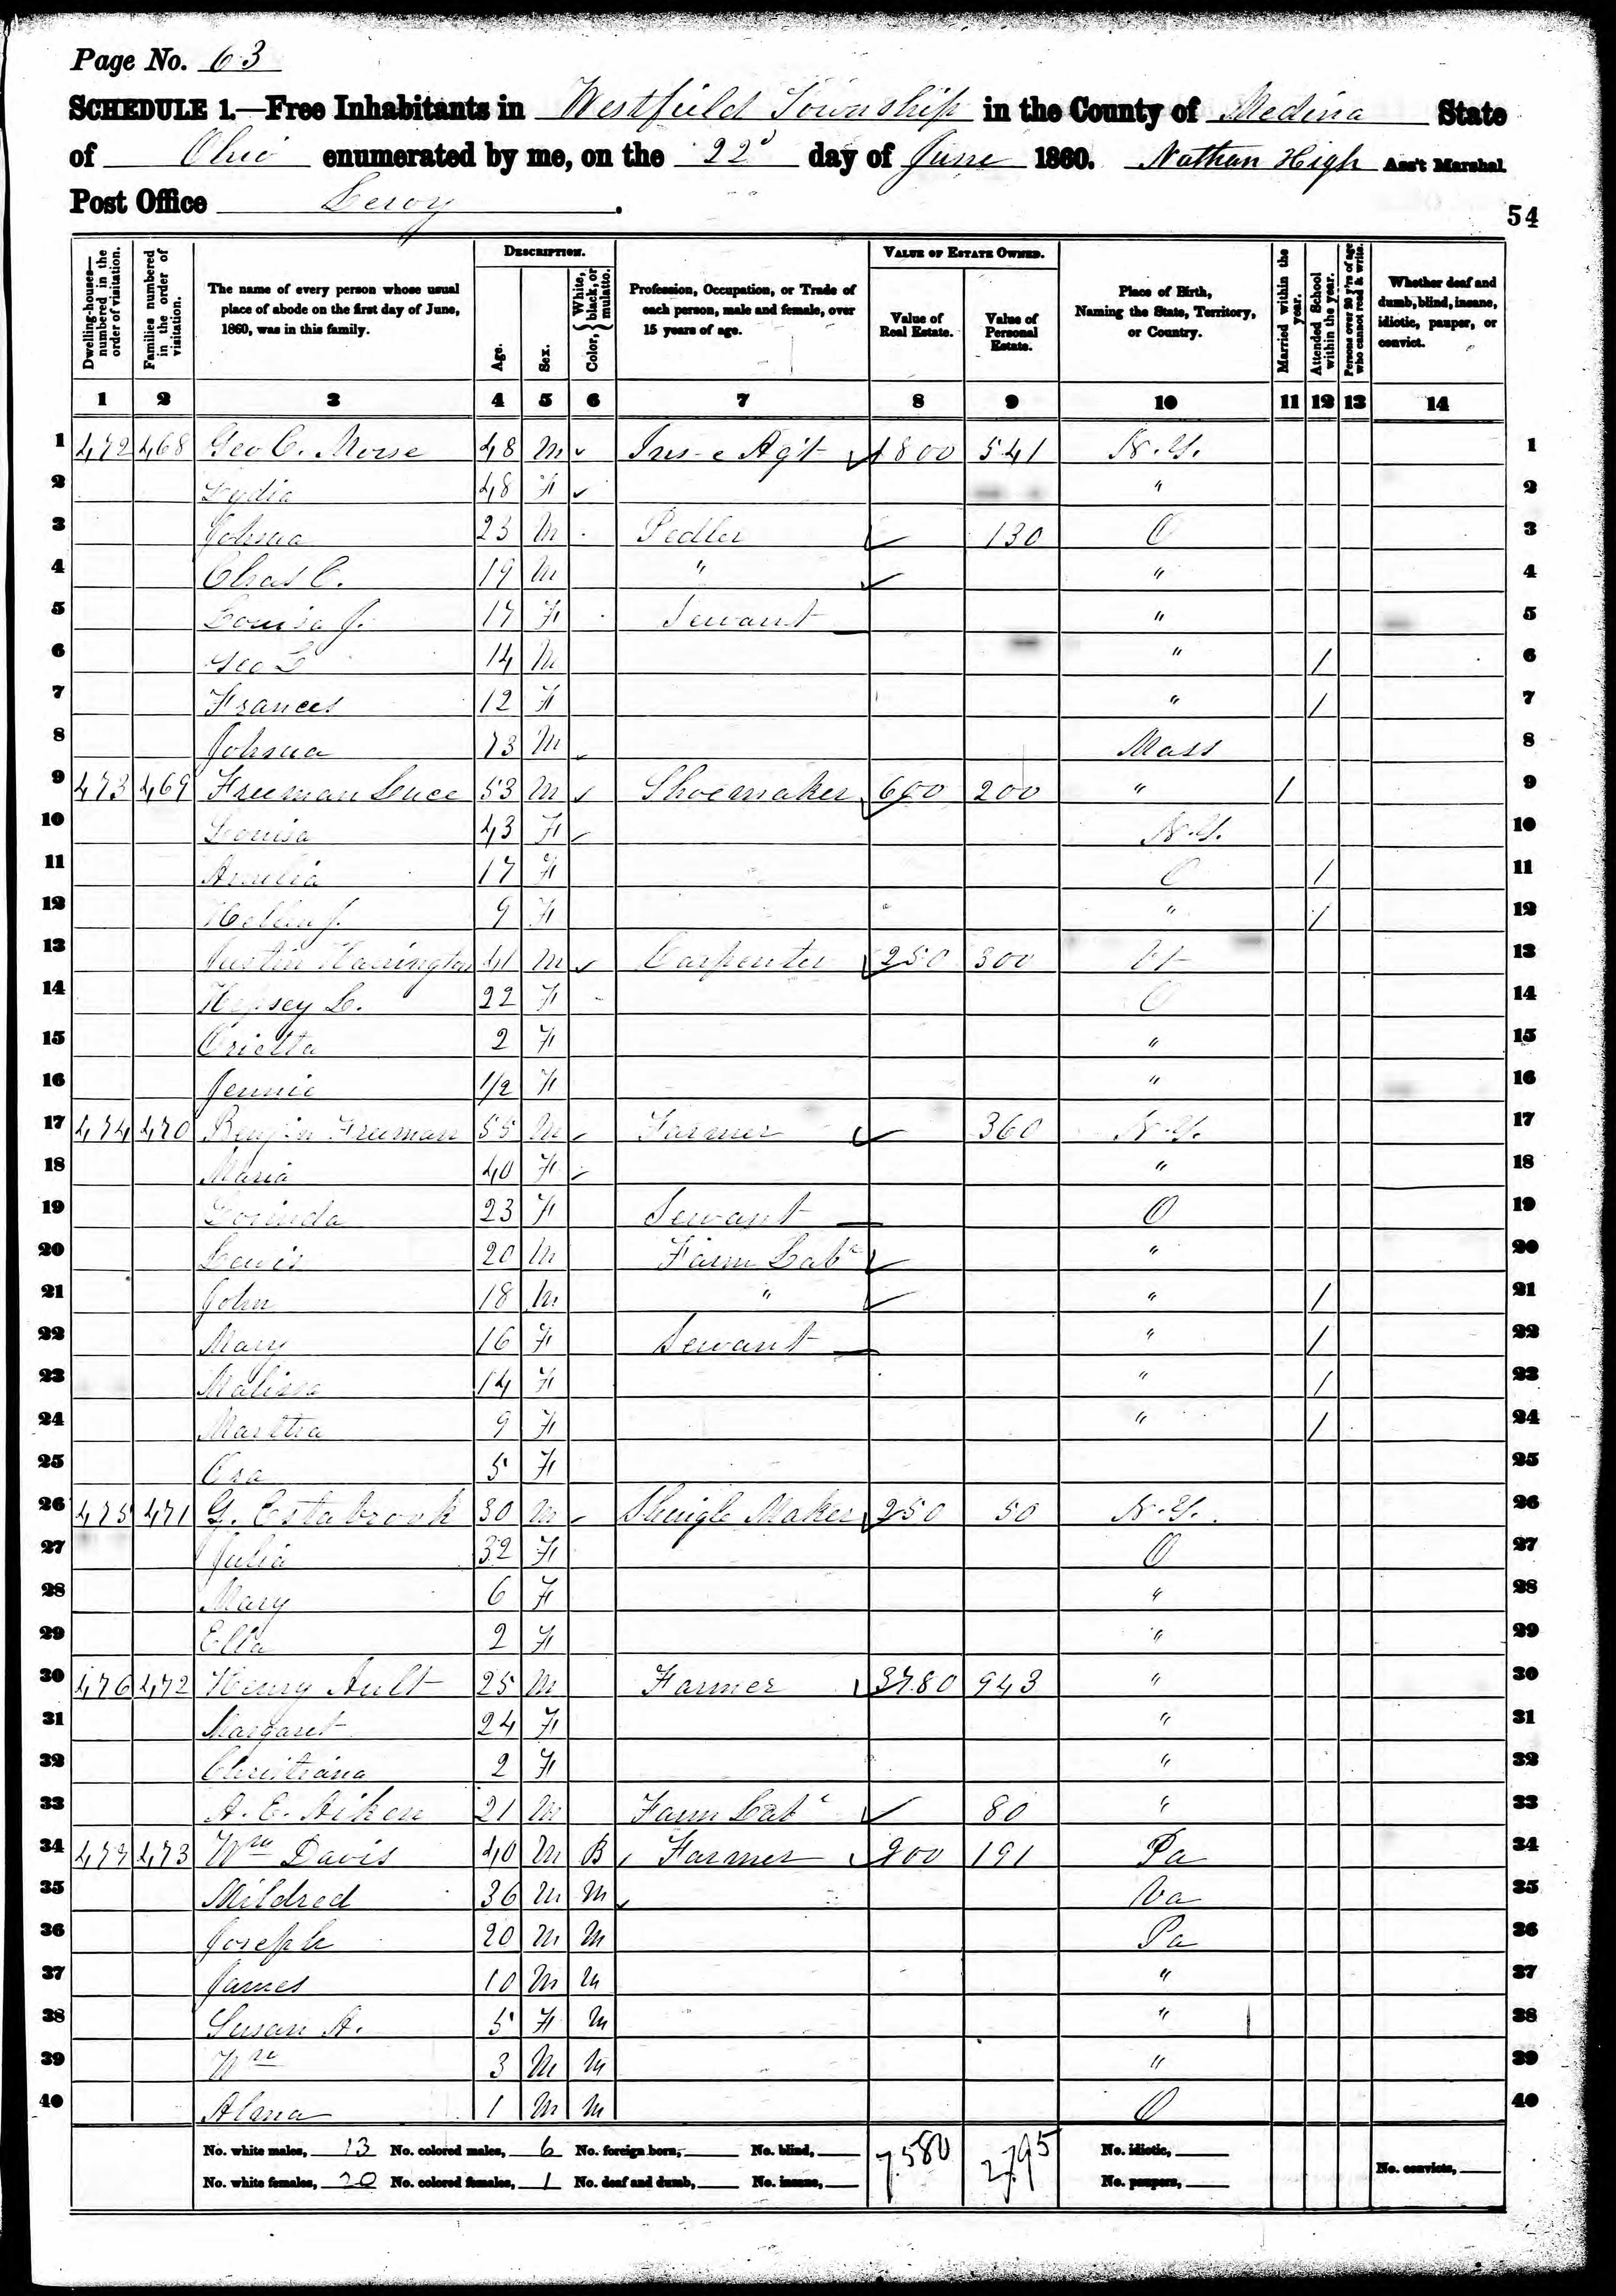 Page No. 63
SCHEDULE 1.—Free Inhabitants in Westfield Township in the County of Medina State
of Ohio enumerated by me, on the 22d day of June 1860. Nathan High Ass't Marshal.
Post Office Leroy.
54
Dwelling-houses—numbered in the order of visitation.
Families numbered in the order of visitation.
The name of every person whose usual place of abode on the first day of June, 1860, was in this family.
DESCRIPTION.
Age.
Sex.
Color, { White, black, or mulatto.
Profession, Occupation, or Trade of each person, male and female, over 15 years of age.
VALUE OF ESTATE OWNED.
Value of Real Estate.
Value of Personal Estate.
Place of Birth, Naming the State, Territory, or Country.
Married within the year.
Attended School within the year.
Persons over 20 y'rs of age who cannot read & write.
Whether deaf and dumb, blind, insane, idiotic, pauper, or convict.
1 2 3 4 5 6 7 8 9 10 11 12 13 14
1 472 468 Geo C. Morse 48 M Ins-e Agt 1800 541 N.Y. 1
2 Lydia 48 F " 2
3 Johsua 23 M Pedler 130 O 3
4 Chas C. 19 M " " 4
5 Louisa J. 17 F Servant " 5
6 Geo L 14 M " / 6
7 Frances 12 F " / 7
8 Johsua 73 M Mass 8
9 473 469 Freeman Luce 53 M Shoemaker 600 200 " / 9
10 Louisa 43 F N.Y. 10
11 Amelia 17 F O / 11
12 Hellen J. 9 F " / 12
13 Justin Harrington 41 M Carpenter 250 300 Vt 13
14 Hepsey L. 22 F O 14
15 Orietta 2 F " 15
16 Jennie 1/2 F " 16
17 474 470 Benjin Freeman 55 M Farmer 360 N.Y. 17
18 Maria 40 F " 18
19 Lorinda 23 F Servant O 19
20 Lewis 20 M Farm Labr " 20
21 John 18 M " " / 21
22 Mary 16 F Servant " / 22
23 Malissa 14 F " / 23
24 Martha 9 F " / 24
25 Ora 5 F 25
26 475 471 G. Estabrook 30 M Shingle Maker 250 50 N.Y. 26
27 Julia 32 F O 27
28 Mary 6 F " 28
29 Ella 2 F " 29
30 476 472 Henry Ault 25 M Farmer 3780 943 " 30
31 Margaret 24 F " 31
32 Christiana 2 F " 32
33 A. E. Aiken 21 M Farm Labr 80 " 33
34 477 473 Wm Davis 40 M B Farmer 900 191 Pa 34
35 Mildred 36 M M Va 35
36 Joseph 20 M M Pa 36
37 James 10 M M " 37
38 Susan A. 5 F M " 38
39 Wm 3 M M " 39
40 1 M M O 40
No. white males, 13 No. colored males, 6 No. foreign born, No. blind, 7,580 2,795 No. idiotic,
No. white females, 20 No. colored females, 1 No. deaf and dumb, No. insane, No. paupers, No. convicts,